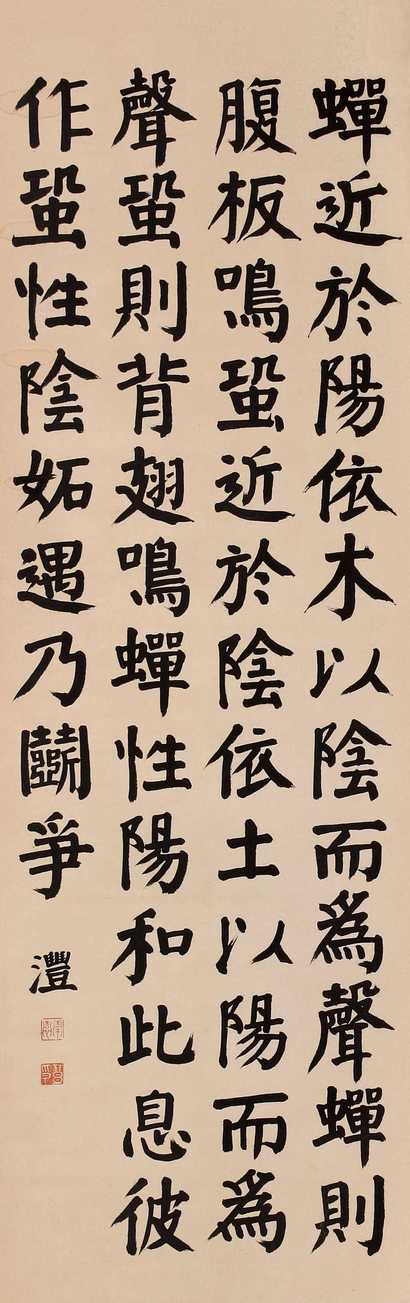 蟬近於陽依木以陰而爲聲蟬則
腹板鳴蛩近於陰依土以陽而爲
聲蛩則背翅鳴蟬性陽和此息彼
作蛩性陰妬遇乃鬭爭
灃